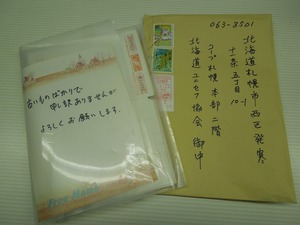 古いものばかりで
申し訳ありませんが
よろしくお願いします。
063-8501
北海道札幌市西区発寒
十一条五丁目10-1
コープ札幌本部二階
北海道ユニセフ協会 御中